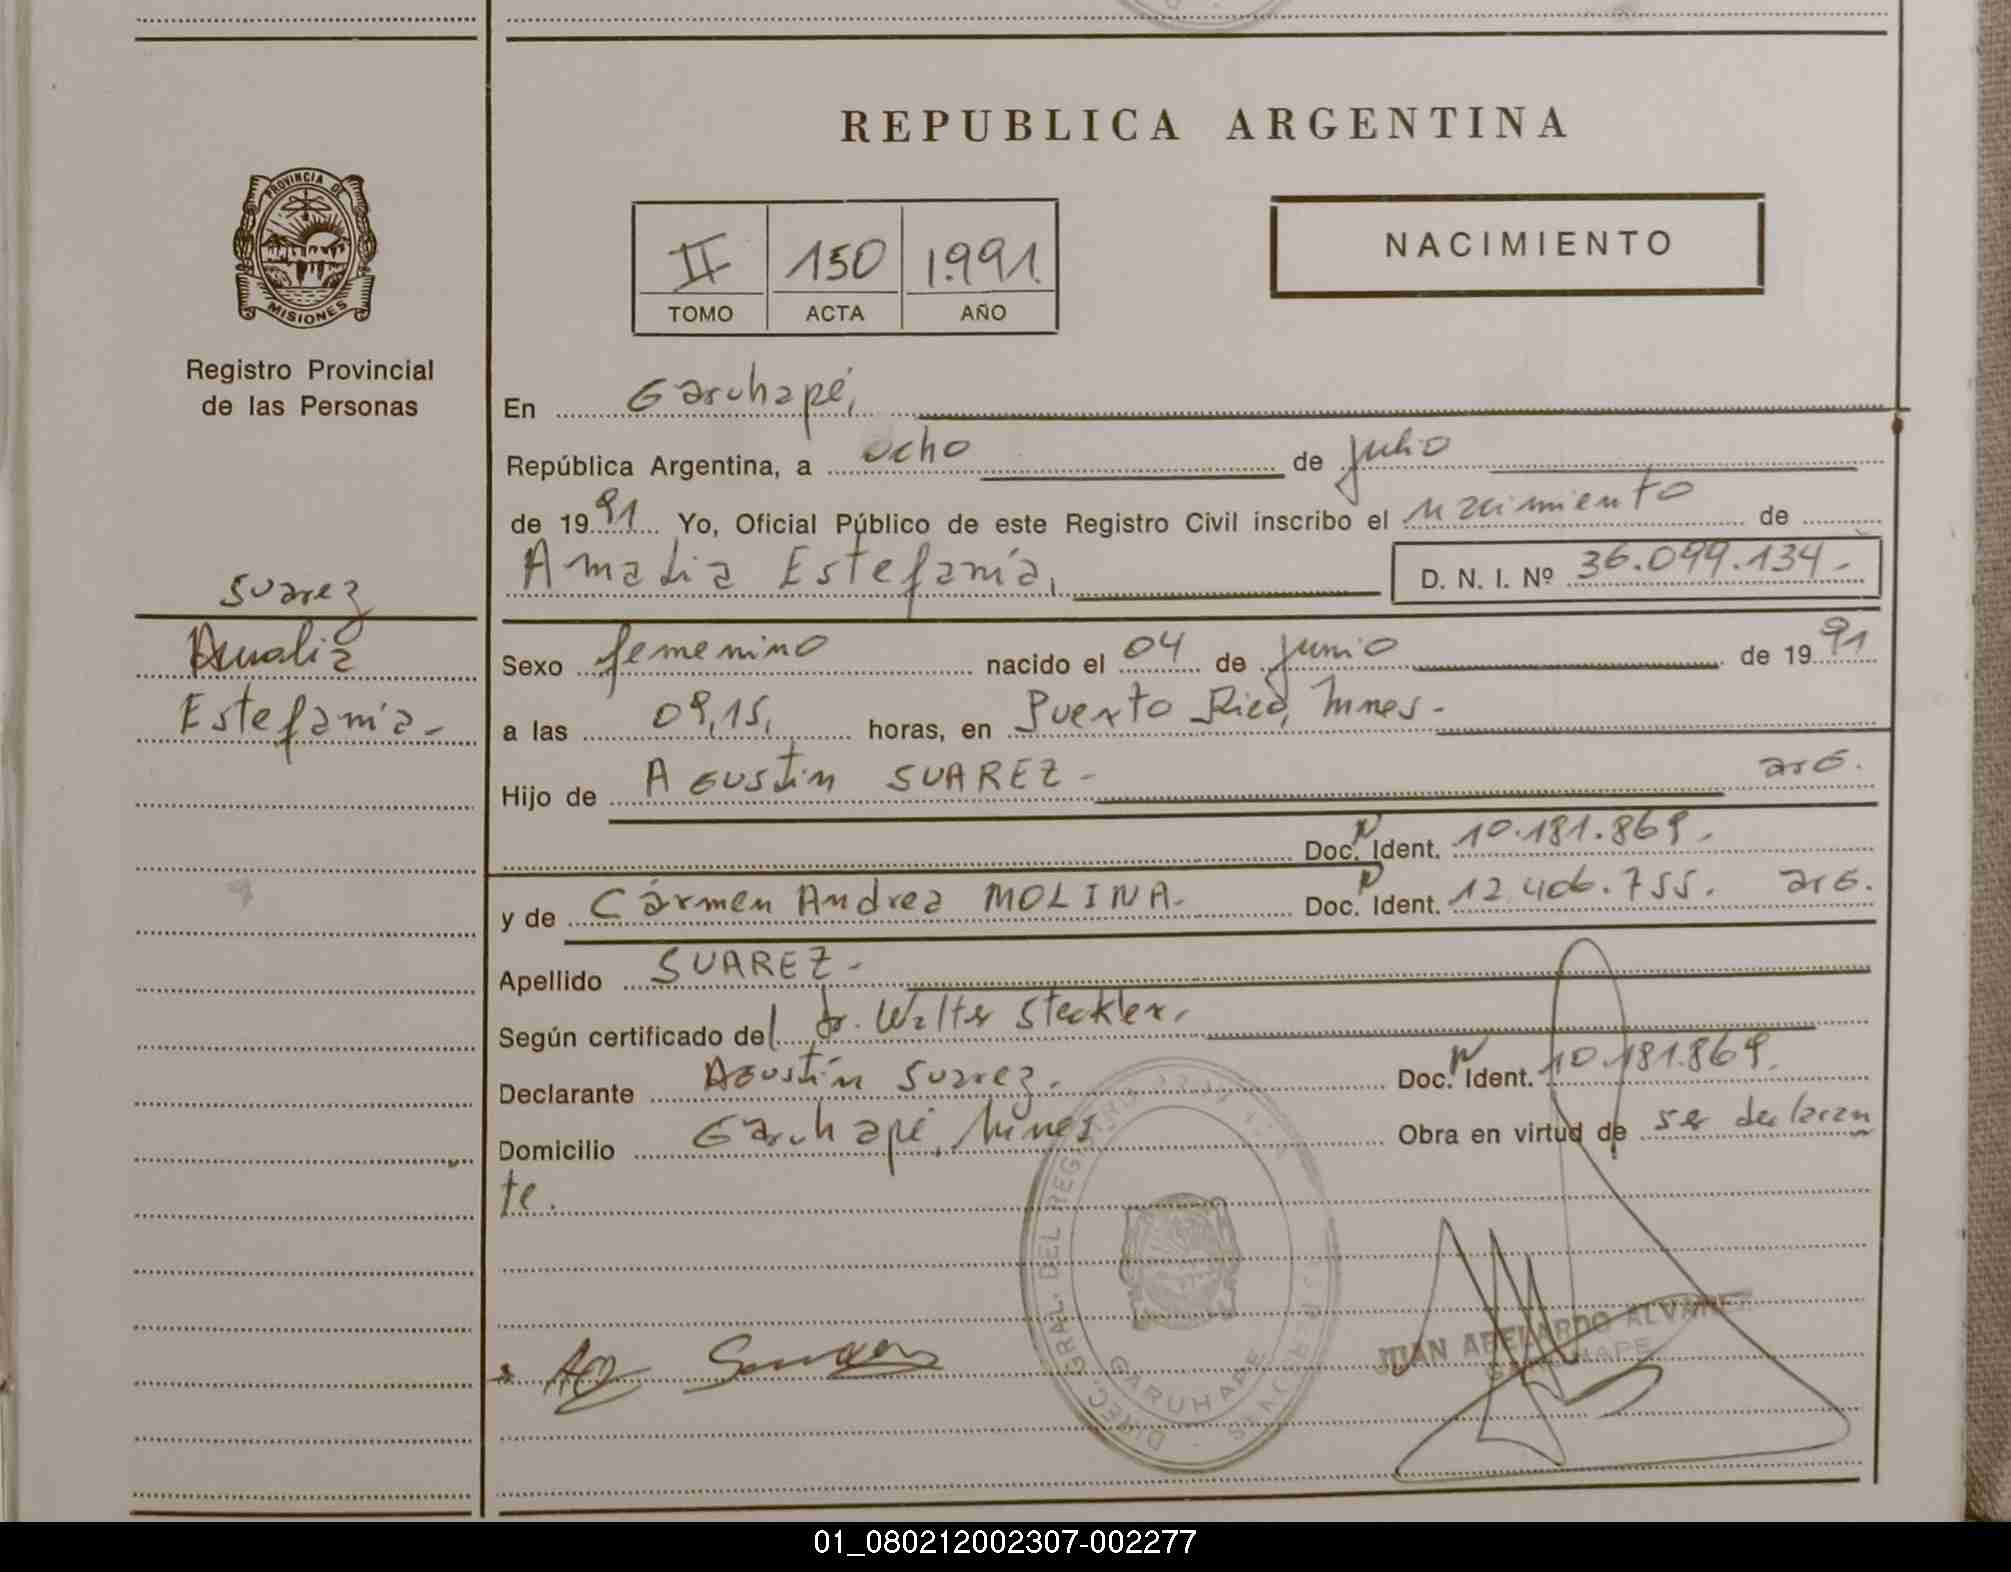 REPUBLICA ARGENTINA
PROVINCIA DE
MISIONES
Registro Provincial
de las Personas
II 150 1.991.
TOMO ACTA AÑO
NACIMIENTO
En Garuhapé,
República Argentina, a ocho de julio
de 1991 Yo, Oficial Público de este Registro Civil inscribo el nacimiento de
Amalia Estefanía, D. N. I. Nº 36.099.134.-
Suarez
Amalia
Estefanía.-
Sexo femenino nacido el 04 de junio de 1991
a las 09,15, horas, en Puerto Rico, Mnes.-
Hijo de Agustín SUAREZ.- arg.
Doc. N Ident. 10.181.869.
y de Cármen Andrea MOLINA.- Doc. N Ident. 12.406.755. arg.
Apellido SUAREZ.-
Según certificado del dr. Walter Steckler.
Declarante Agustín Suarez. Doc. N Ident. 10.181.869.
Domicilio Garuhapé, Mnes Obra en virtud de ser declaran
te.
DIREC. GRAL. DEL REGISTRO
GARUHAPE
MISIONES
JUAN ABELARDO ALVAREZ
GARUHAPE
01_080212002307-002277